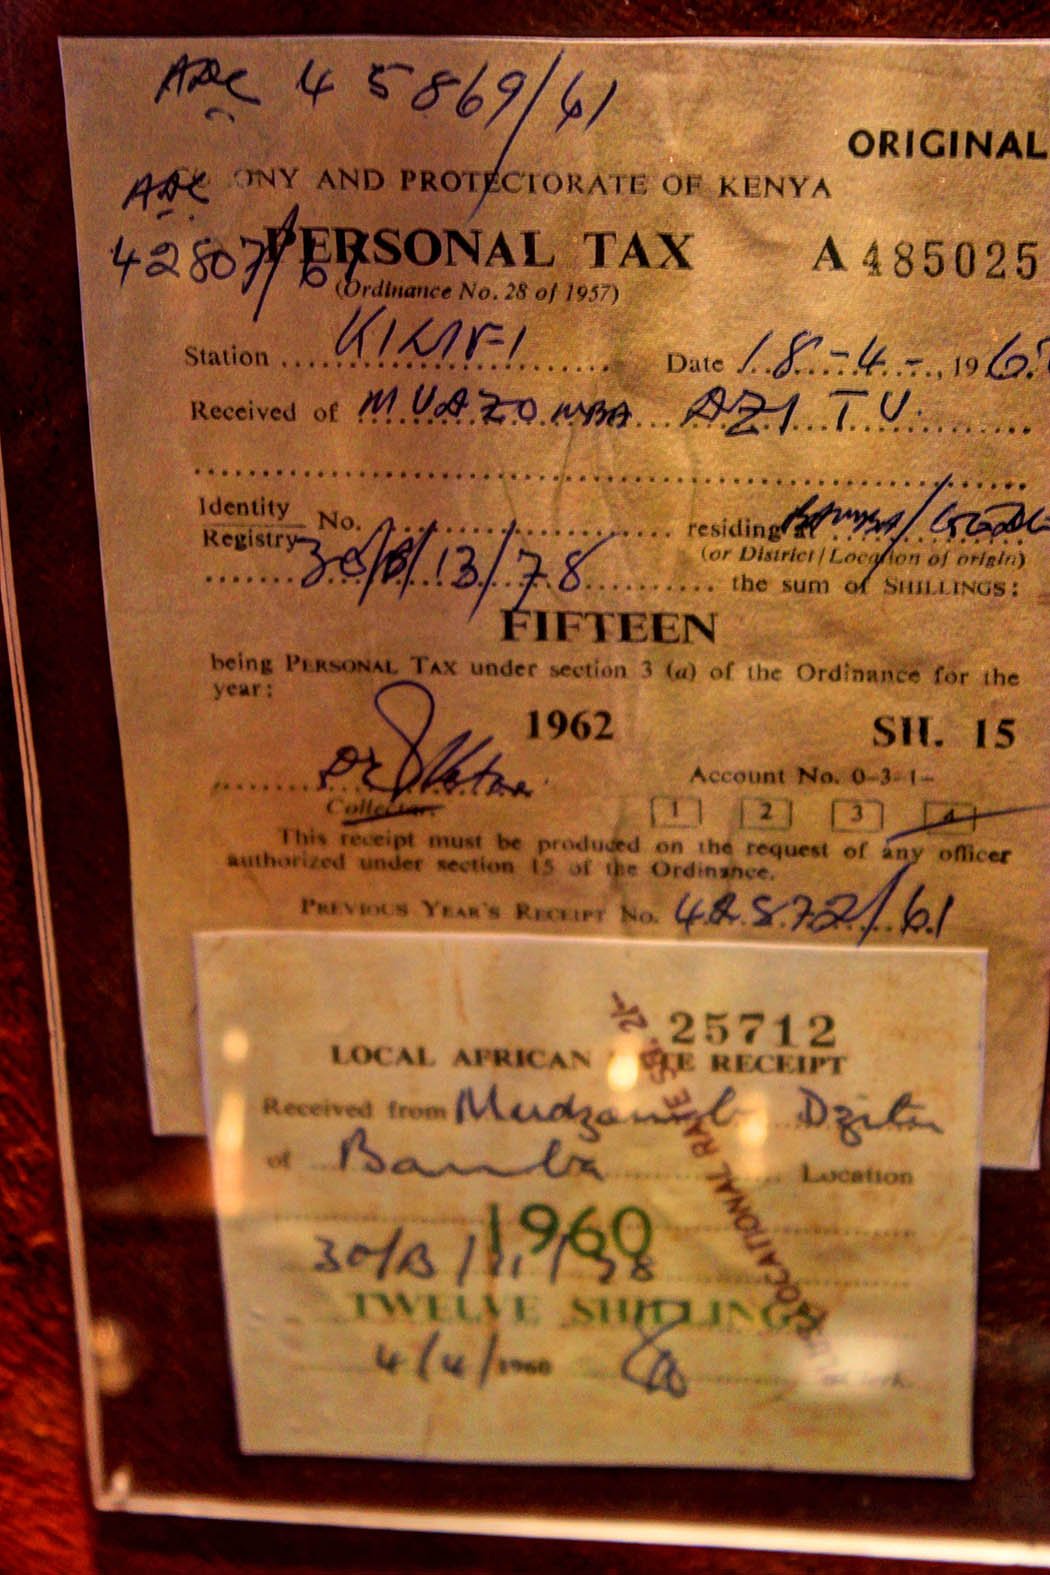 ADC 45869/61
ORIGINAL
ONY AND PROTECTORATE OF KENYA
ADC
42807/61
PERSONAL TAX A 485025
(Ordinance No. 28 of 1957)
Station KILIFI Date 18-4-, 196
Received of AZITU
Identity
Registry No. residing at
(or District/Location of origin)
13/78 the sum of SHILLINGS:
FIFTEEN
being PERSONAL TAX under section 3 (a) of the Ordinance for the
year:
1962 SH. 15
Account No. 0-3-1-
Collector. 1 2 3 4
This receipt must be produced on the request of any officer
authorized under section 15 of the Ordinance.
PREVIOUS YEAR'S RECEIPT No. 42872/61
25712
LOCAL AFRICAN RECEIPT
Received from
of Bamba Location
1960
TWELVE SHILLINGS
4/4/1960
LOCATIONAL RATE SH. 2/-